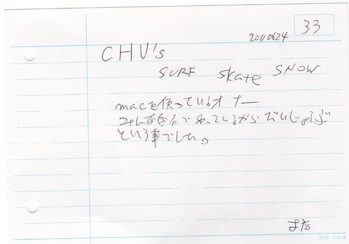 33
20110624
CHU's
SURF skate SNOW
macを使っているオーナー
みんな自分でやっているからだいじょうぶ
という事でした。